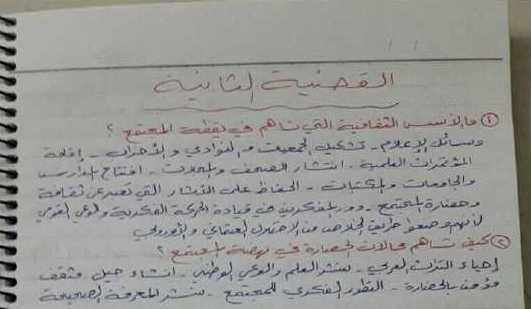 القضية الثانية
① ما الأسس الثقافية التي تساهم في يقظة المجتمع ؟
وسائل الإعلام - تشكيل الجمعيات و النوادي والأحزاب - إقامة
المؤتمرات العلمية - انتشار الصحف والمجلات - افتتاح المدارس
والجامعات والمكتبات - الحفاظ على الآثار التي تعبر عن ثقافة
وحضارة المجتمع - دور المفكرين في قيادة الحركة الفكرية والوعي القومي
لأنهم وضعوا طريق الخلاص من الاحتلال العثماني والأوروبي
② كيف تساهم مجالات الحضارة في نهضة المجتمع ؟
إحياء التراث العربي - نشر العلم والوعي الوطني - انشاء جيل مثقف
مؤمن بالحضارة - التطور الفكري للمجتمع - نشر المعرفة الصحيحة